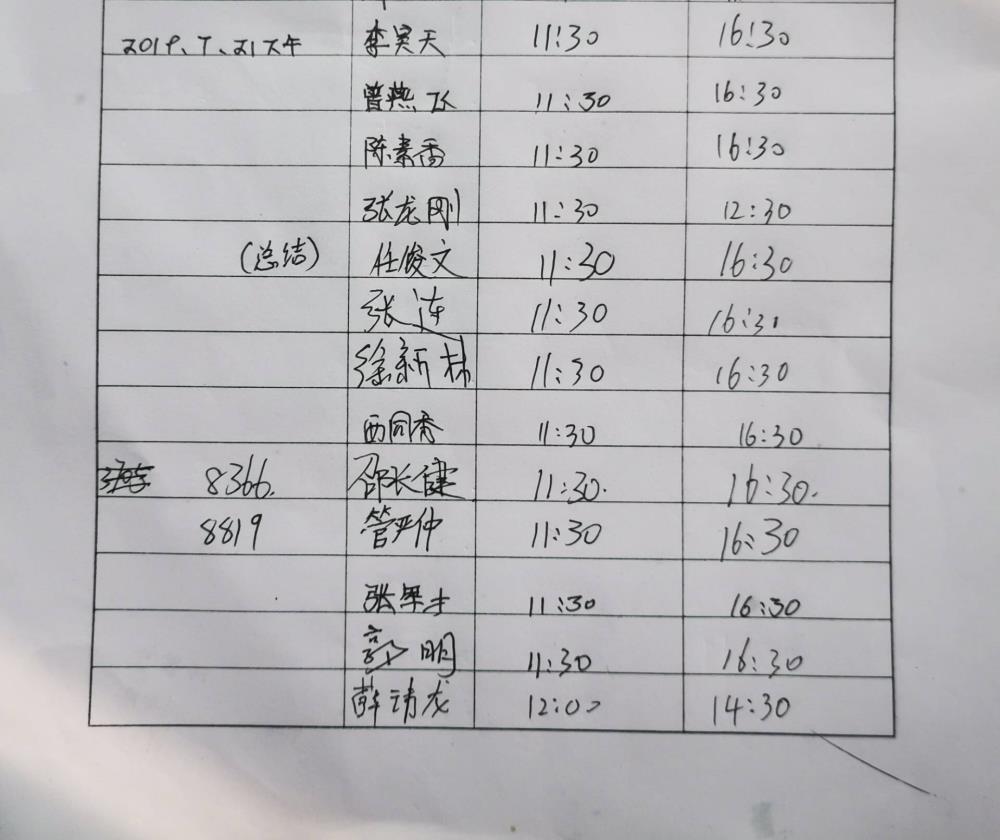 2019.7.21下午 李昊天 11:30 16:30
曾燕飞 11:30 16:30
陈素雷 11:30 16:30
张龙刚 11:30 12:30
(总结) 任俊文 11:30 16:30
张涛 11:30 16:30
徐新林 11:30 16:30
西同香 11:30 16:30
8366. 邵长健 11:30. 16:30.
8819 管严仲 11:30 16:30
张军才 11:30 16:30
郭明 11:30 16:30
薛靖龙 12:00 14:30